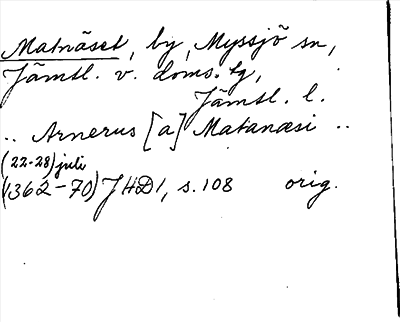 Matnäset, by, Myssjö sn,
Jämtl. v. doms. tg,
Jämtl. l.
.. Arnerus [a] Matanæsi ..
(22-28) juli
(1362-70) JHD1, s. 108 orig.